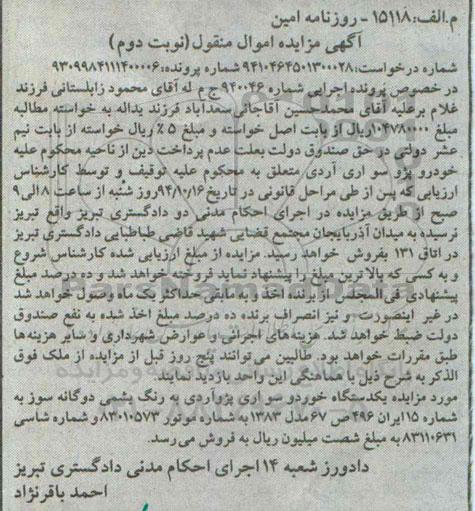 م.الف: ۱۵۱۱۸ - روزنامه امین
آگهی مزایده اموال منقول (نوبت دوم)
شماره درخواست: ۹۴۱۰۴۶۴۵۰۱۳۰۰۰۲۸ شماره پرونده: ۹۳۰۹۹۸۴۱۱۱۴۰۰۰۰۶
در خصوص پرونده اجرایی شماره ۹۴۰۰۴۶ ج م له آقای محمود زابلستانی فرزند
غلام بر علیه آقای محمدحسین آقاجانی سعدآباد فرزند یداله به خواسته مطالبه
مبلغ ۱۰۴۷۸۰۰۰۰ ریال از بابت اصل خواسته و مبلغ ۵٪ ریال خواسته از بابت نیم
عشر دولتی در حق صندوق دولت بعلت عدم پرداخت دین از ناحیه محکوم علیه
خودرو پژو سواری آردی متعلق به محکوم علیه توقیف و توسط کارشناس
ارزیابی که پس از طی مراحل قانونی در تاریخ ۹۴/۱۰/۱۶ روز شنبه از ساعت ۸ الی ۹
صبح از طریق مزایده در اجرای احکام مدنی دو دادگستری تبریز واقع تبریز
نرسیده به میدان آذربایجان مجتمع قضایی شهید قاضی طباطبایی دادگستری تبریز
در اتاق ۱۳۱ بفروش خواهد رسید. مزایده از مبلغ ارزیابی شده کارشناس شروع
و به کسی که بالاترین مبلغ را پیشنهاد نماید فروخته خواهد شد و ده درصد مبلغ
پیشنهادی فی المجلس از برنده اخذ و به مابقی حداکثر یک ماه وصول خواهد شد
در غیر اینصورت و نیز انصراف برنده ده درصد مبلغ اخذ شده به نفع صندوق
دولت ضبط خواهد شد. هزینه های اجرائی و عوارض شهرداری و سایر هزینه ها
طبق مقررات خواهد بود. طالبین می توانند پنج روز قبل از مزایده از ملک فوق
الذکر به شرح ذیل با هماهنگی این واحد بازدید نمایند.
مورد مزایده یکدستگاه خودرو سواری پژو آردی به رنگ یشمی دوگانه سوز به
شماره ۱۵ ایران ۴۹۶ ص ۶۷ مدل ۱۳۸۳ به شماره موتور ۸۳۰۱۰۵۷۳ و شماره شاسی
۸۳۱۱۰۶۳۱ به مبلغ شصت میلیون ریال به فروش می رسد.
دادورز شعبه ۱۴ اجرای احکام مدنی دادگستری تبریز
احمد باقرنژاد
ParsNamadData